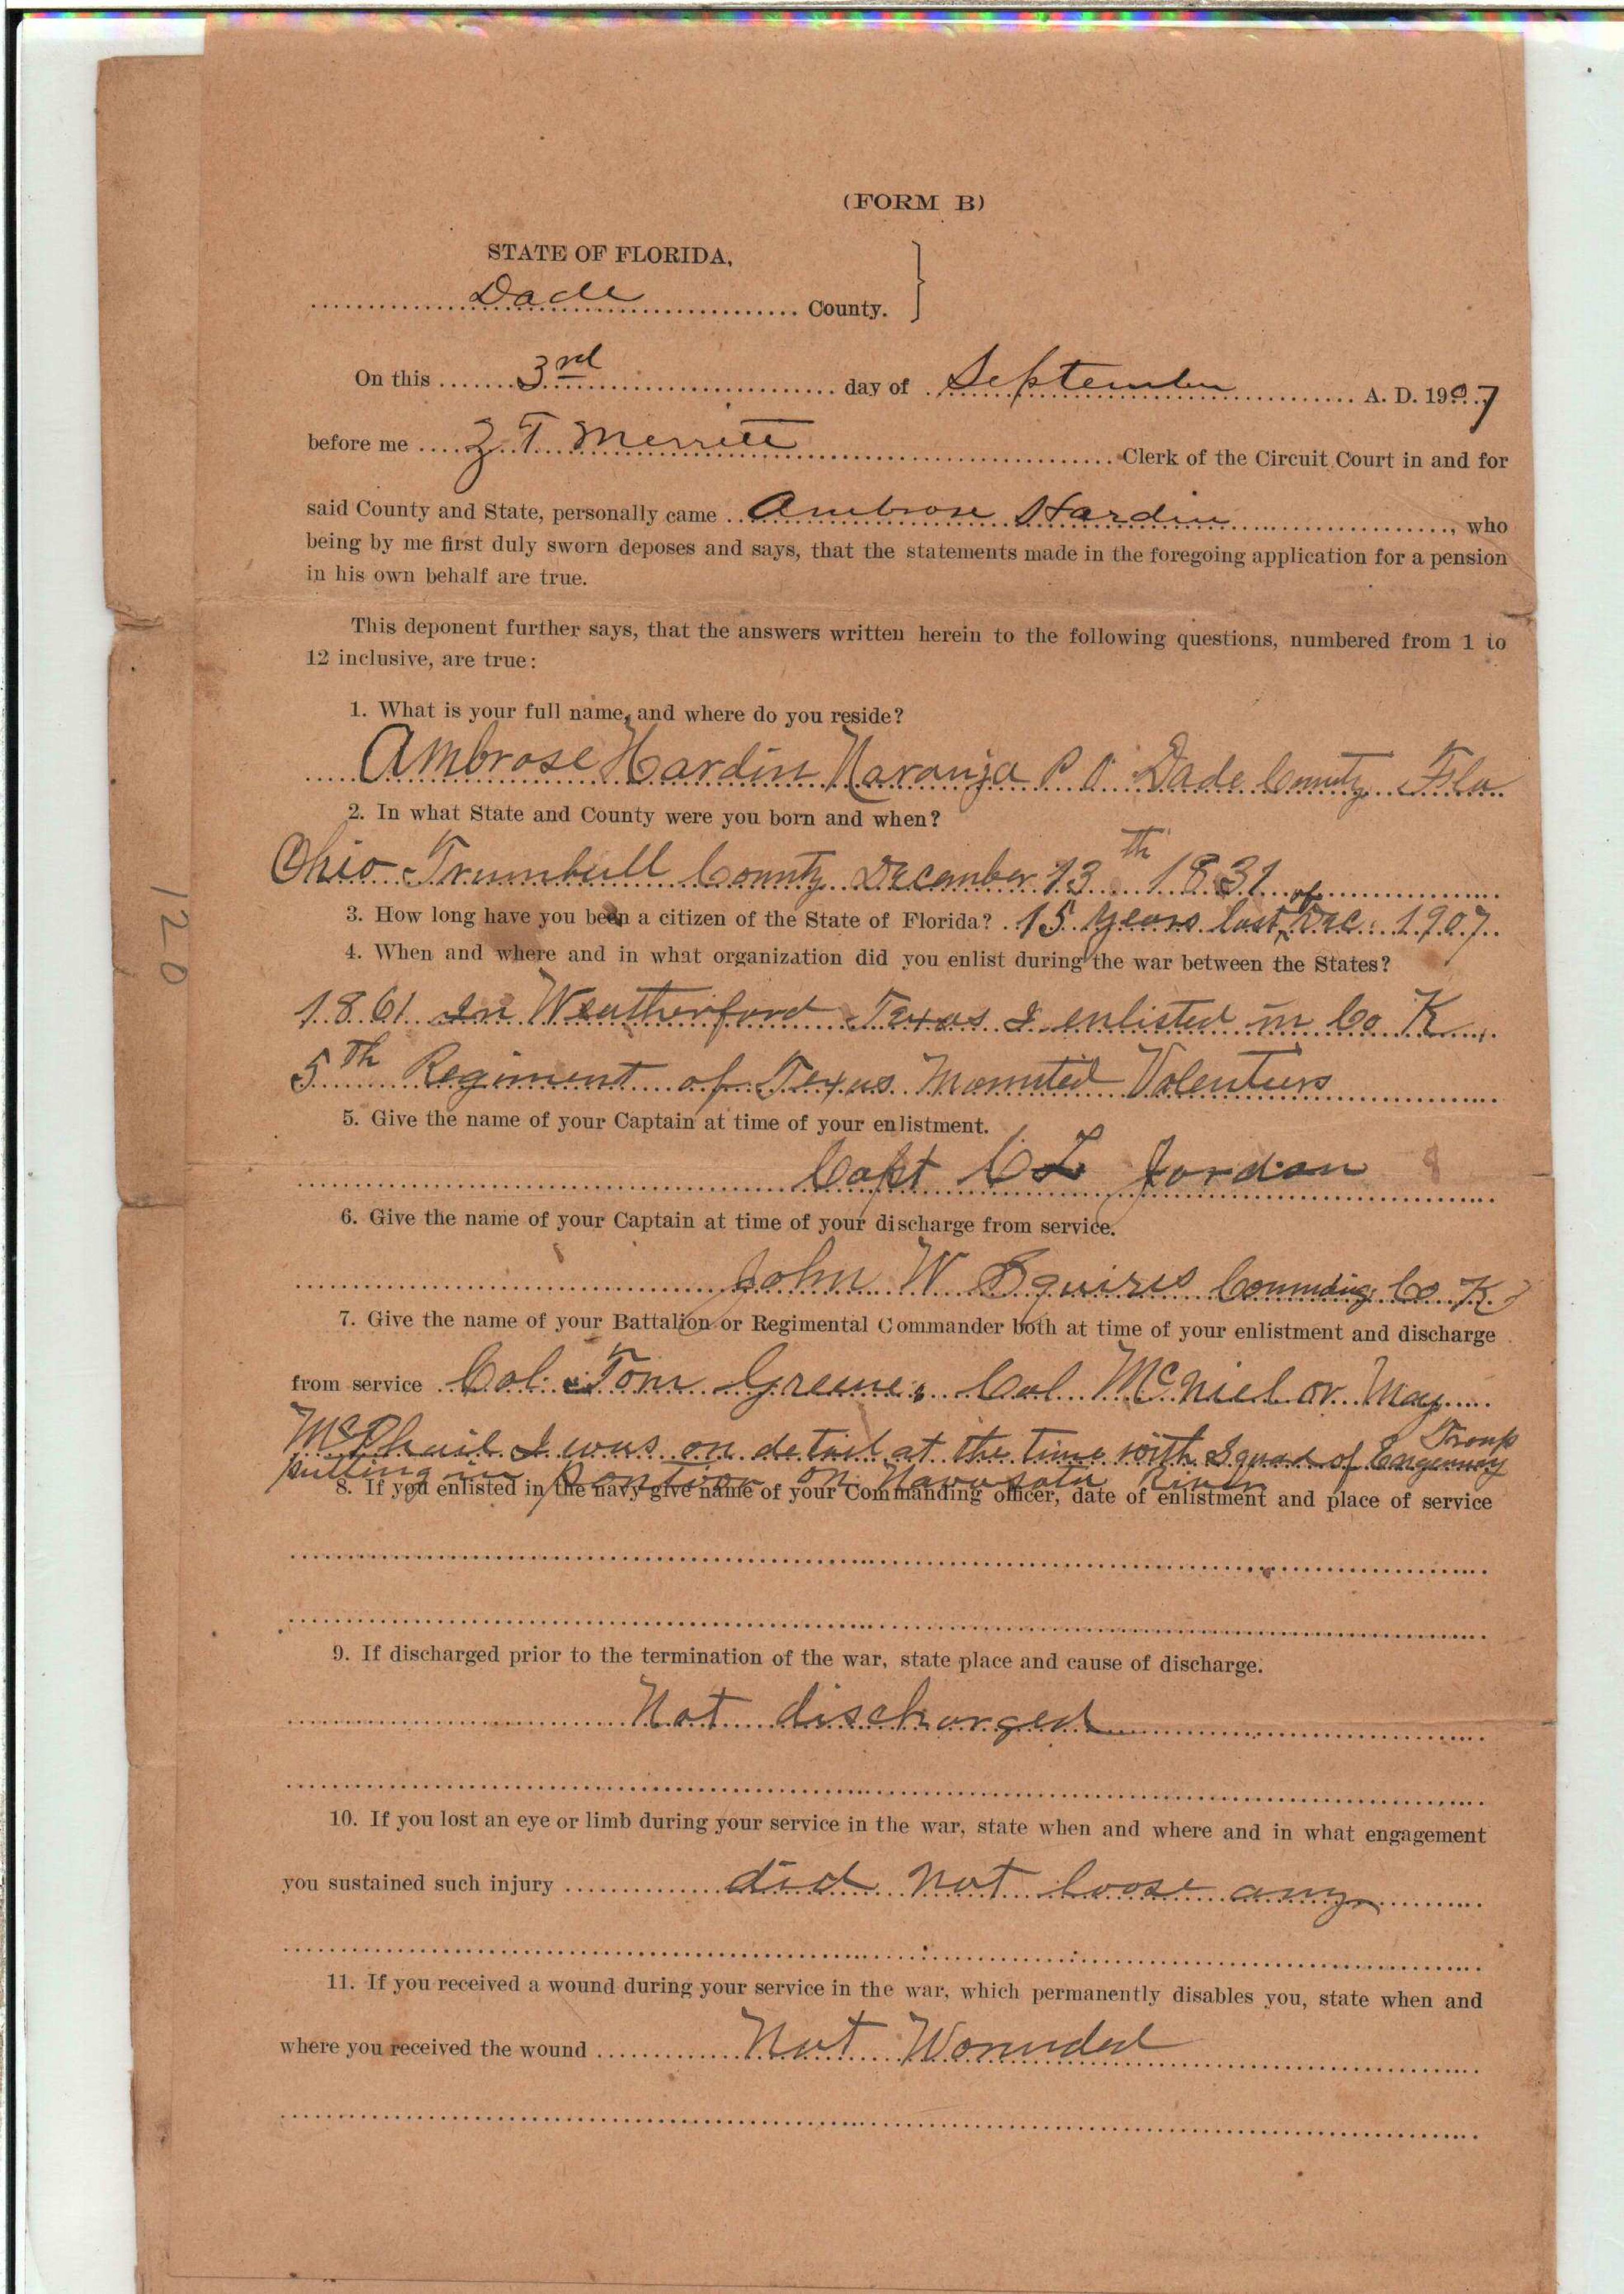 (FORM B)
STATE OF FLORIDA,
Dade County.
On this 3rd day of September A. D. 1907
before me Z. T. Merritt Clerk of the Circuit Court in and for
said County and State, personally came Ambrose Hardin, who
being by me first duly sworn deposes and says, that the statements made in the foregoing application for a pension
in his own behalf are true.
This deponent further says, that the answers written herein to the following questions, numbered from 1 to
12 inclusive, are true:
1. What is your full name, and where do you reside?
Ambrose Hardin Naranja P. O. Dade County Fla
2. In what State and County were you born and when?
Ohio Trumbull County December 13th 1831
3. How long have you been a citizen of the State of Florida? 15 years last of Dec. 1907.
4. When and where and in what organization did you enlist during the war between the States?
1861 In Weatherford Texas I enlisted in Co K.
5th Regiment of Texas Mounted Volenteers
5. Give the name of your Captain at time of your enlistment.
Capt C L Jordan
6. Give the name of your Captain at time of your discharge from service.
John W Squires Comnding Co K.
7. Give the name of your Battalion or Regimental Commander both at time of your enlistment and discharge
from service Col. Tom Greene, Col McNiel or May
McPhail I was on detail at the time with Squad of Troup
putting in Pontoon on Navasota River
8. If you enlisted in the navy give name of your Commanding officer, date of enlistment and place of service
9. If discharged prior to the termination of the war, state place and cause of discharge.
Not discharged
10. If you lost an eye or limb during your service in the war, state when and where and in what engagement
you sustained such injury did not loose any
11. If you received a wound during your service in the war, which permanently disables you, state when and
where you received the wound Not Wounded
120